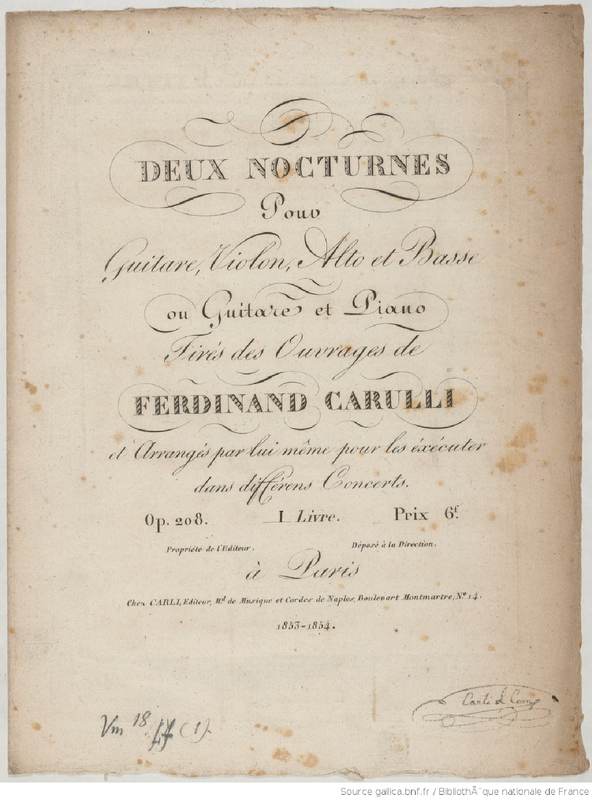 DEUX NOCTURNES
Pour
Guitare, Violon, Alto et Basse
ou Guitare et Piano
Tirés des Ouvrages de
FERDINAND CARULLI
et Arrangés par lui même pour les éxécuter
dans différens Concerts.
Op. 208. I Livre. Prix 6f.
Propriété de l'Editeur. Déposé à la Direction.
à Paris
Chez CARLI, Editeur, Md. de Musique et Cordes de Naples, Boulevart Montmartre, No. 14.
1853-1854.
Carli et Comp
Vm 18 (1)
Source gallica.bnf.fr / BibliothÃ¨que nationale de France